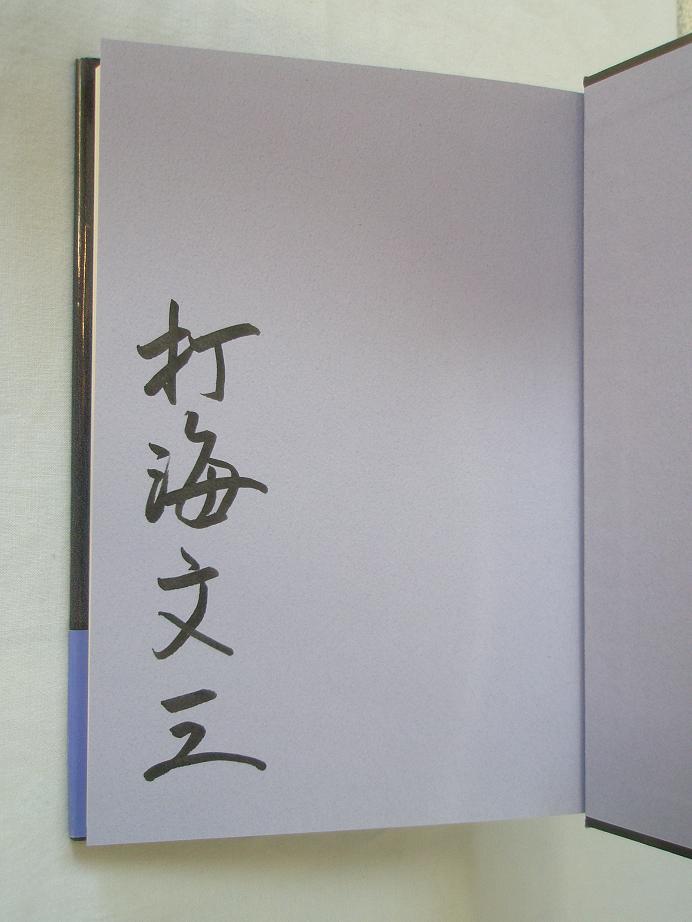 打海文三